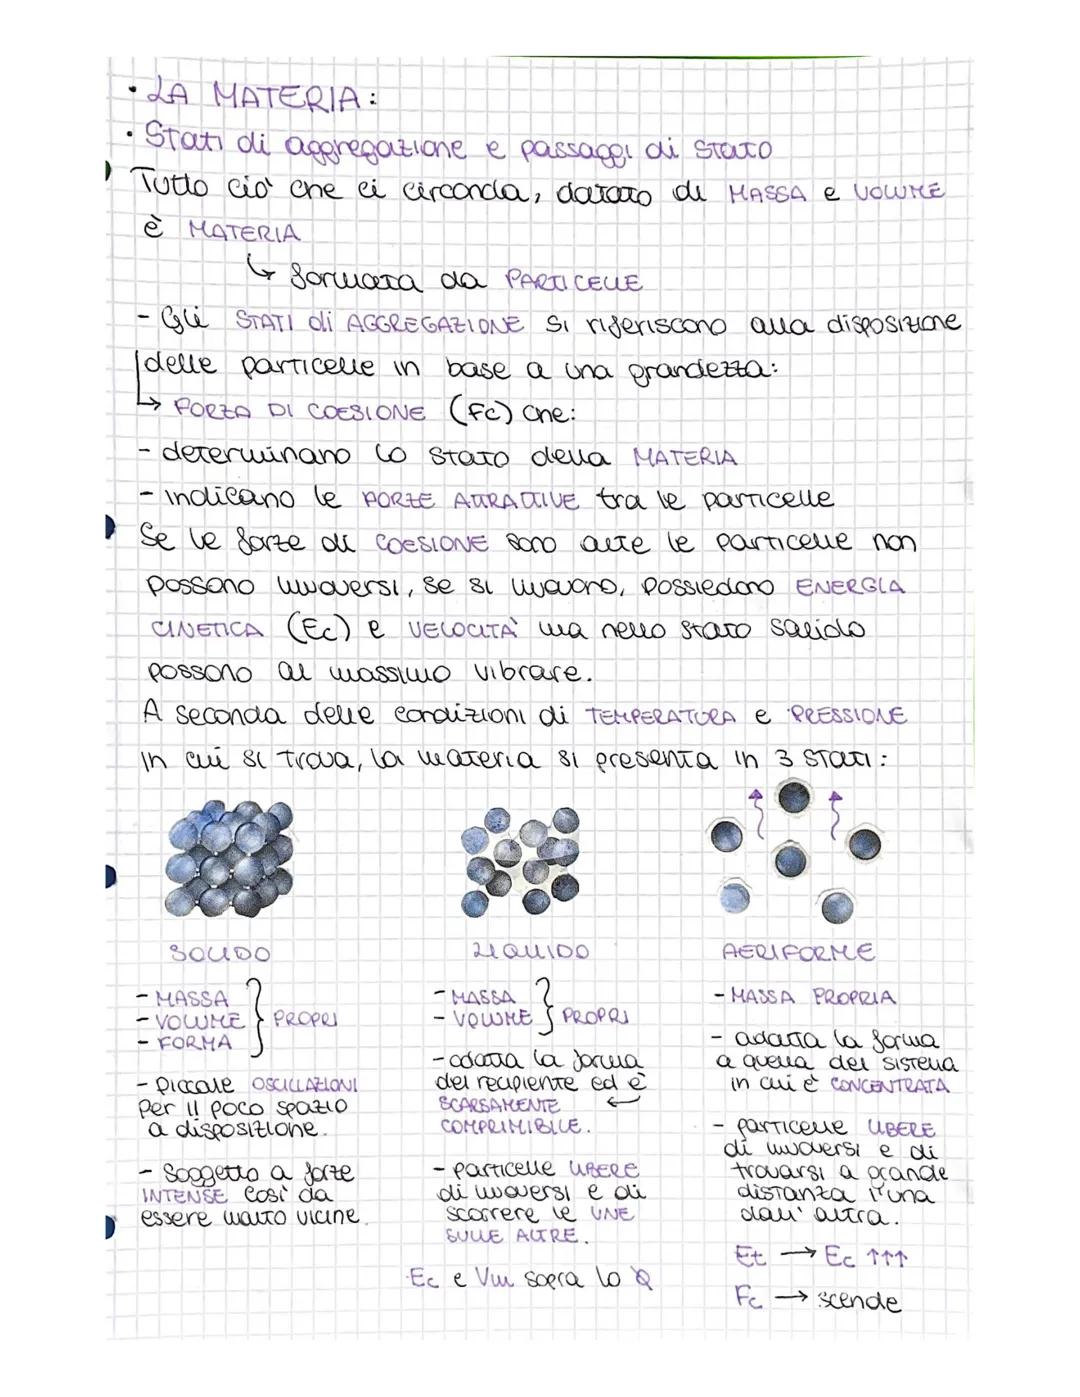 • LA MATERIA:
• Stati di aggregazione e passaggi di stato
Tutto ciò che ci circonda, datato di MASSA e VOLUME
è MATERIA
↳ formata da PARTICELLE
- Gli STATI di AGGREGAZIONE si riferiscono alla disposizione
delle particelle in base a una grandezza:
↳ FORZA DI COESIONE (Fc) che:
- determinano lo stato della MATERIA
- indicano le FORZE ATTRATTIVE tra le particelle
Se le forze di COESIONE sono alte le particelle non
possono muoversi, se si muovono, possiedono ENERGIA
CINETICA (Ec) e VELOCITÀ ma nello stato solido
possono al massimo vibrare.
A seconda delle condizioni di TEMPERATURA e PRESSIONE
in cui si trova, la materia si presenta in 3 stati:
SOLIDO
- MASSA
- VOLUME } PROPRI
- FORMA
- piccole OSCILLAZIONI
per il poco spazio
a disposizione.
- Soggetto a forze
INTENSE così da
essere molto vicine.
LIQUIDO
- MASSA
- VOLUME } PROPRI
- adatta la forma
del recipiente ed è
SCARSAMENTE
COMPRIMIBILE.
- particelle LIBERE
di muoversi e di
scorrere le UNE
SULLE ALTRE.
Ec e Vm sopra lo 0
AERIFORME
- MASSA PROPRIA
- adatta la forma
a quella del sistema
in cui è CONCENTRATA
- particelle LIBERE
di muoversi e di
trovarsi a grande
distanza l'una
dall'altra.
Et → Ec ↑↑↑
Fc → scende